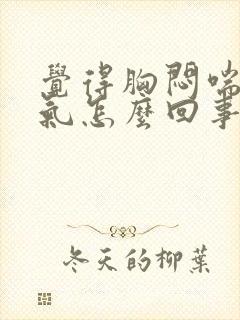 覺得胸悶喘
氣怎麼回事
冬天的柳葉